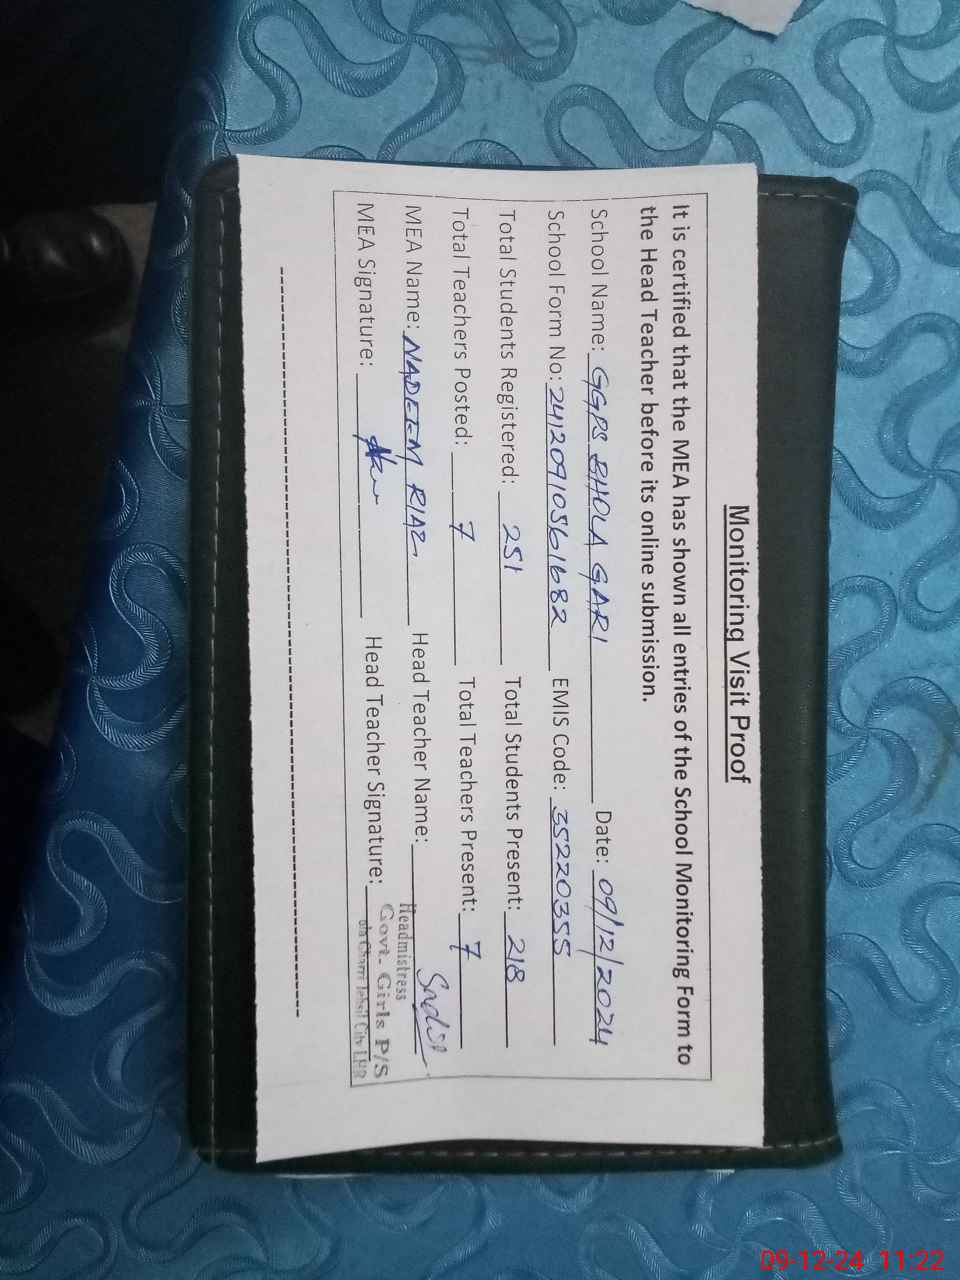 Monitoring Visit Proof
It is certified that the MEA has shown all entries of the School Monitoring Form to
the Head Teacher before its online submission.
School Name: GGPS BHOLA GARI Date: 09/12/2024
School Form No: 24120910561682 EMIS Code: 35220355
Total Students Registered: 251 Total Students Present: 218
Total Teachers Posted: 7 Total Teachers Present: 7
MEA Name: NADEEM RIAZ Head Teacher Name:
MEA Signature: Head Teacher Signature:
Headmistress
Govt. Girls P/S
City LHR
09-12-24 11:22